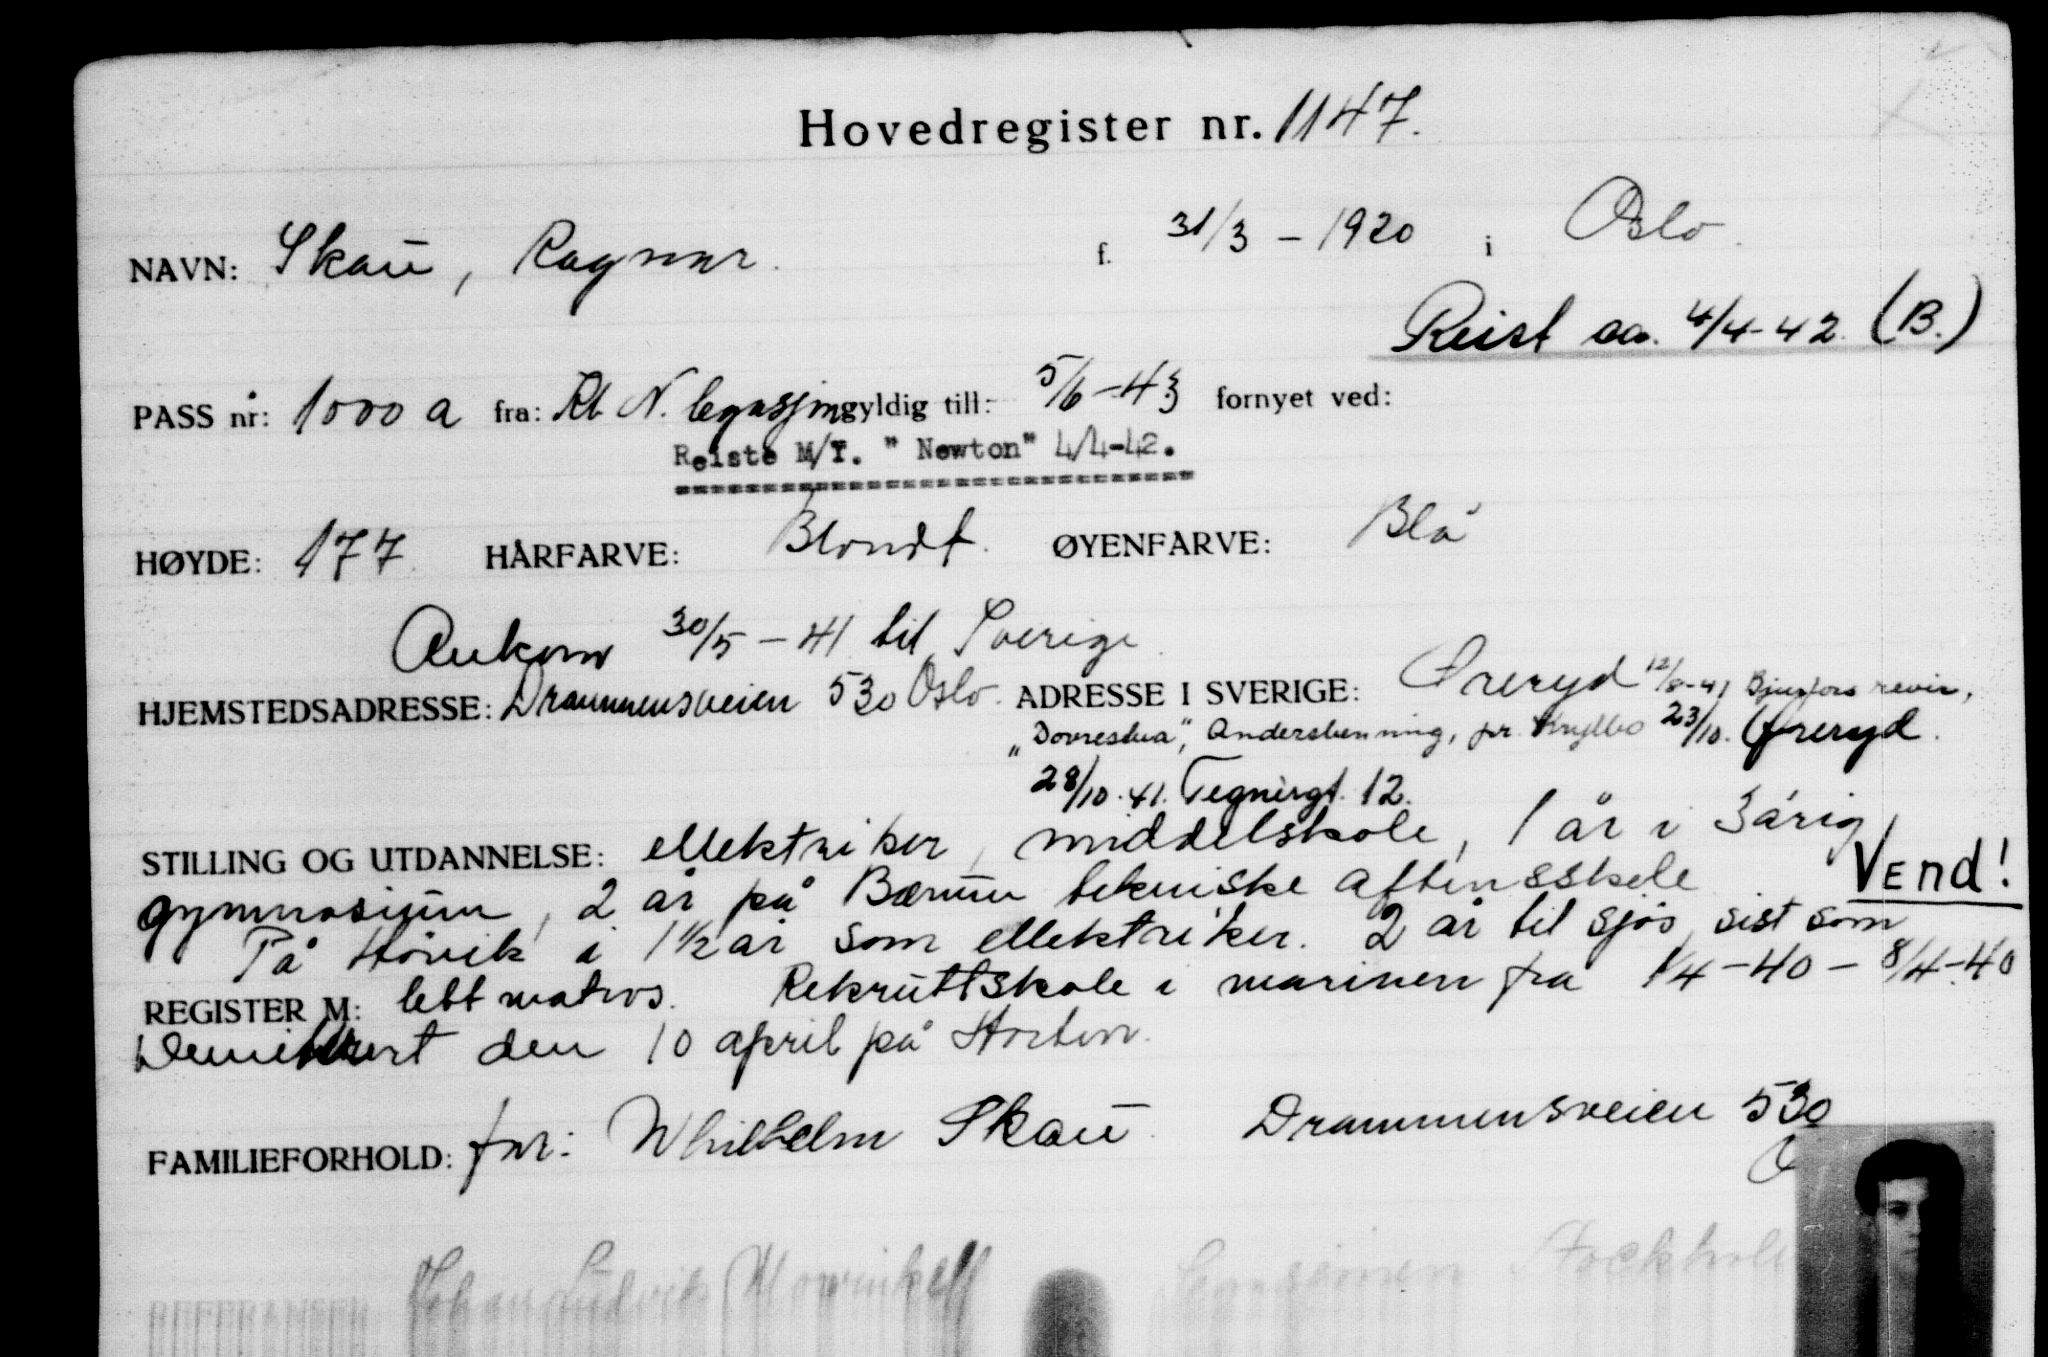 Hovedregister nr. 1147.
NAVN: Skau, Ragnar. f. 31/3 - 1920 i Oslo.
Reist ca. 4/4-42. (B.)
PASS nr: 1000 a fra: Kl N. legasjon gyldig till: 5/6-43 fornyet ved:
Reiste M/T. " Newton" 4/4-42.
HØYDE: 177. HÅRFARVE: Blondt. ØYENFARVE: Blå
Ankom 30/5 - 41 til Sverige.
HJEMSTEDSADRESSE: Drammensveien 530 Oslo. ADRESSE I SVERIGE: Øreryd 12/8-41 Bjurfors revir,
„Dovrestua", Andersbenning, pr. Krylbo 23/10. Øreryd.
28/10.41. Tegnérgt. 12.
STILLING OG UTDANNELSE: ellektriker, middelskole, 1 år i 3årig
Vend!
gymnasium, 2 år på Bærum tekniske aftensskole.
På Hövik i 1½ år som ellektriker. 2 år til sjös, sist som
REGISTER M: lett matros. Rekruttskole i marinen fra 1/4-40 - 8/4-40
den 10 april på Horten.
FAMILIEFORHOLD: far: Whilhelm Skau. Drammensveien 530
REFERANSER Johan Ludvik Mowinkell Stockholm